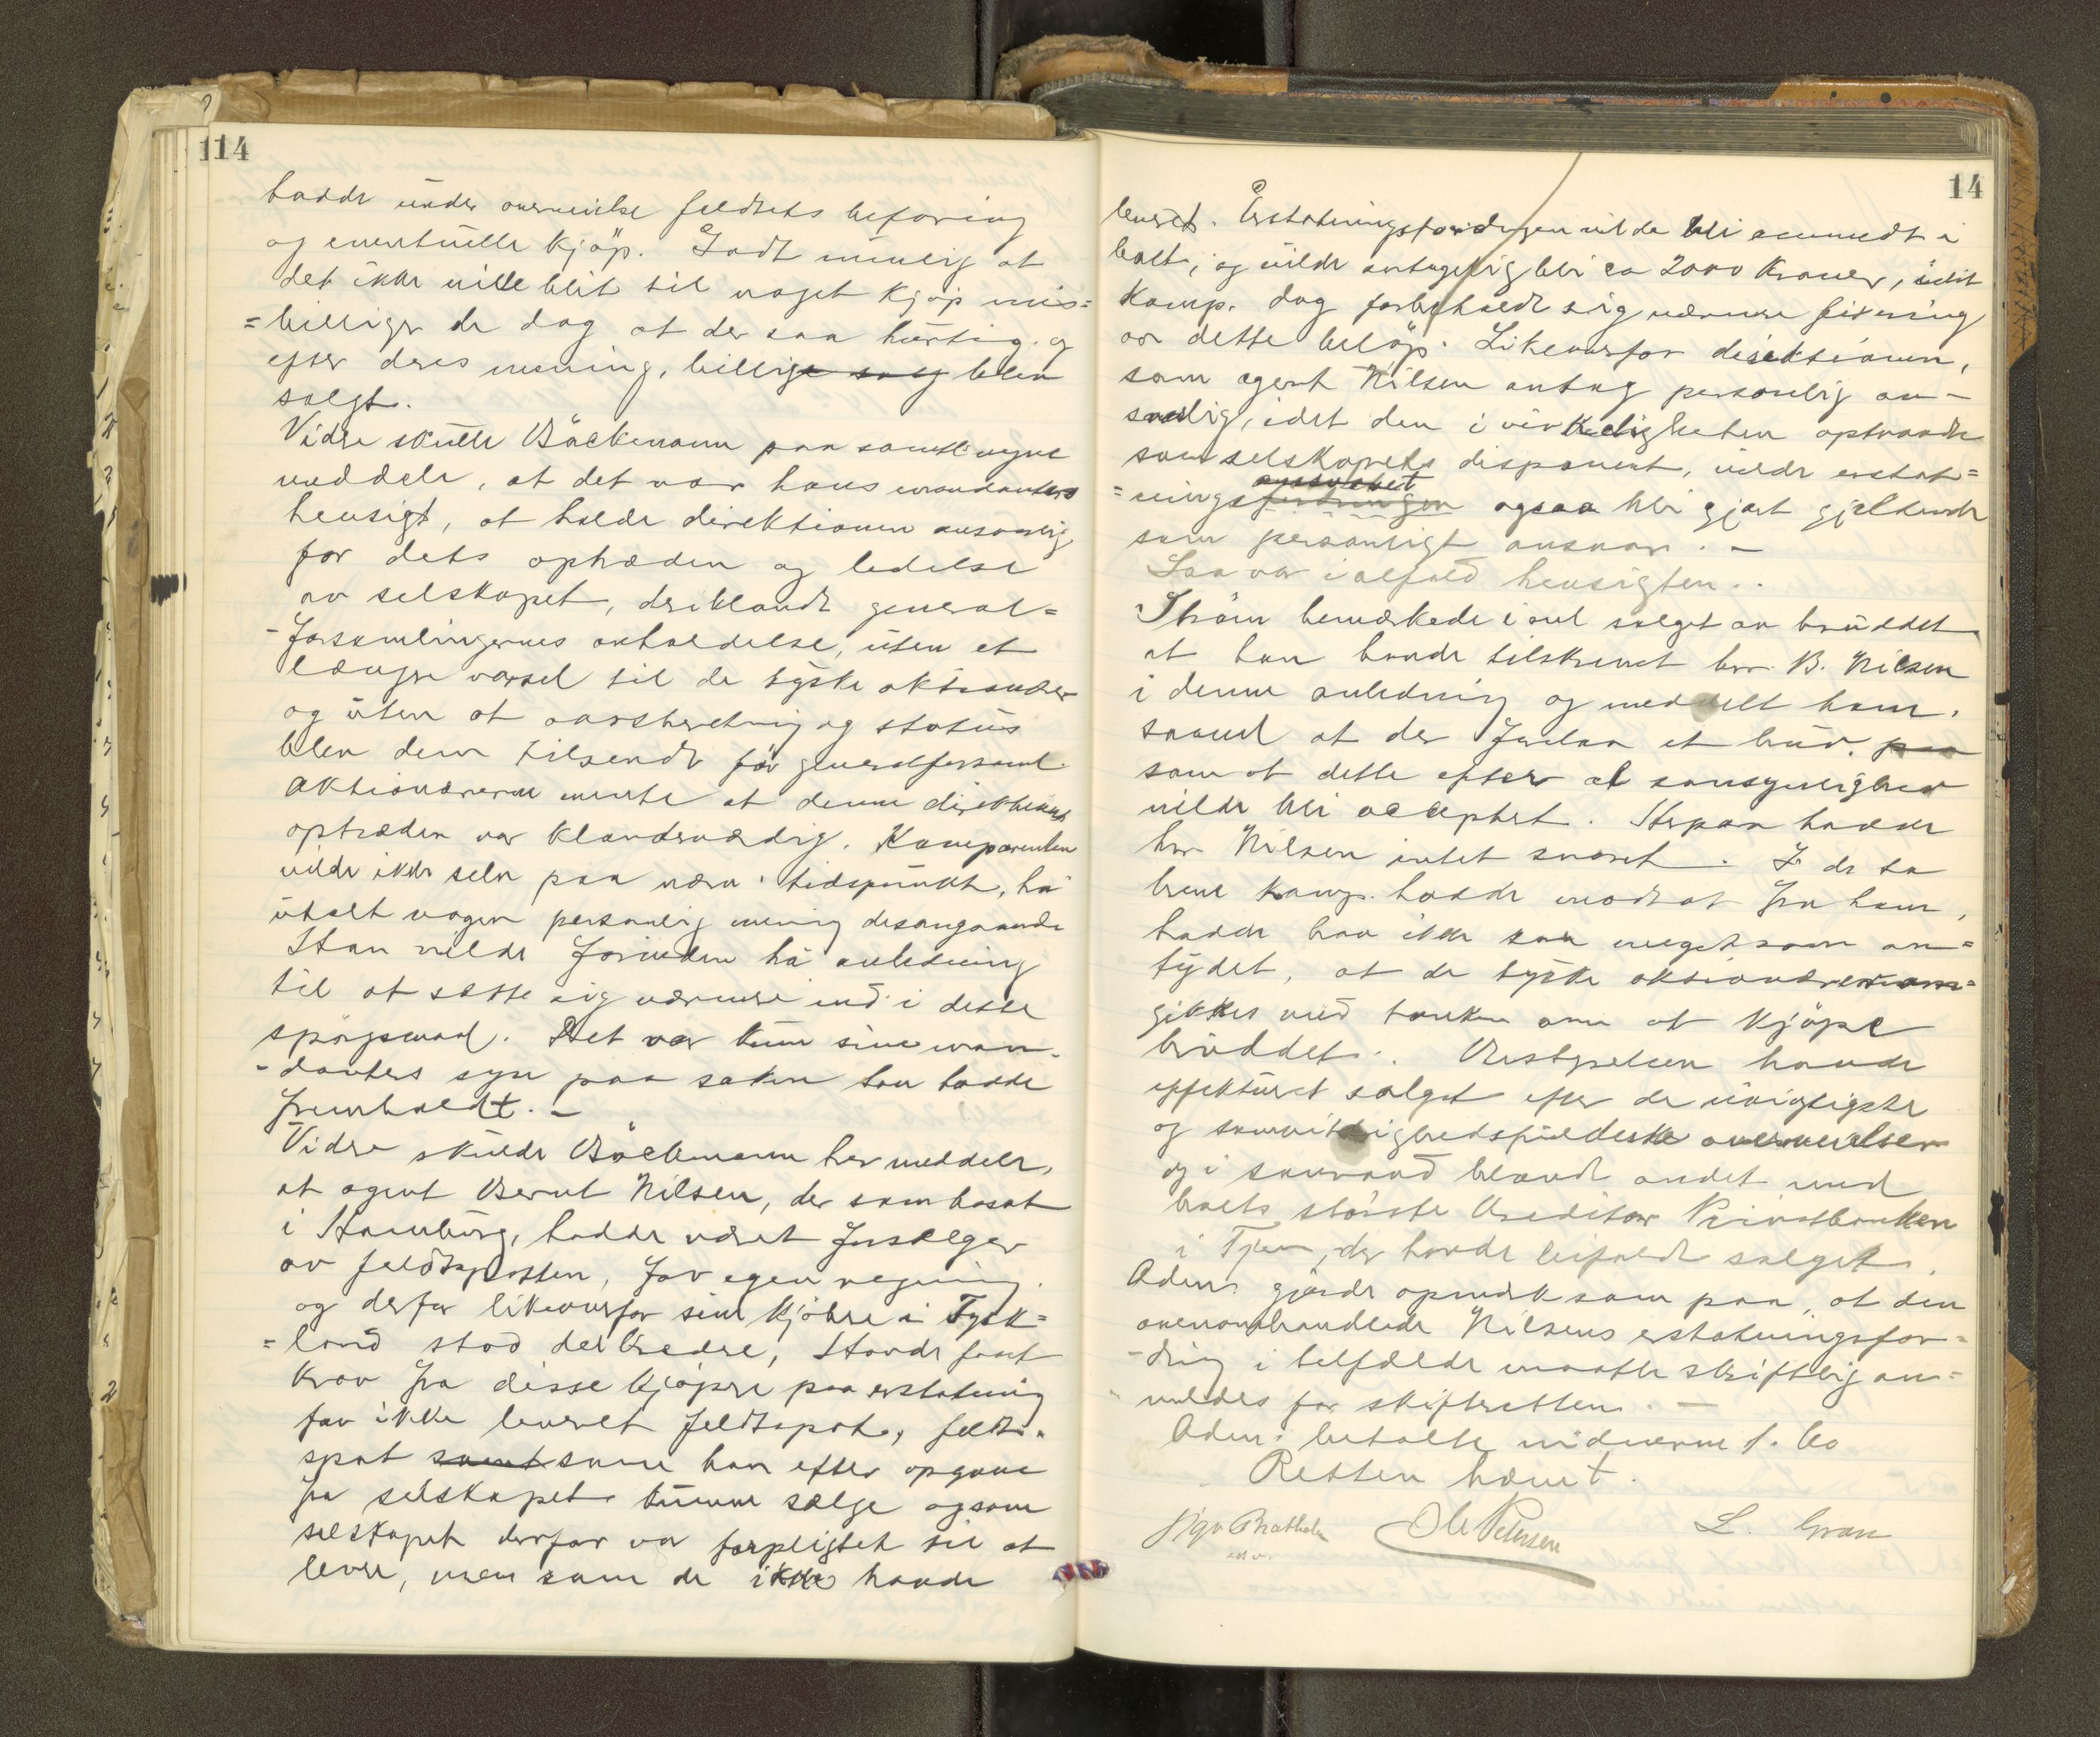 114
hadde under overveielse feldtets befaring
og eventuelle kjøp. Godt mulig at
det ikke ville blit til noget kjøp mis=
=billiger de dog at der saa hurtig og
efter deres mening, billige salg blev
solgt.
Videre skulde Böckmann paa samtl. vegne
meddele, at det var hans mandanters
hensigt, at holde direktionen ansvarlig
for dets optræden og ledelse
av selskapet, deriblandt general=
-forsamlingernes avholdelse, uten et
længre varsel til de tyske aktionærer
og uten at aarsberetning og status
blev dem tilsendt før generalforsaml.
Aktionærerne mente at denne direktionens
optræden var klanderværdig. Komparenten
vilde ikke selv paa nærv. tidspunkt, ha
utalt nogen personlig mening desangaaende
Han vilde forinden ha anledning
til at sætte sig nærmere ind i dette
spørgsmaal. Det var kun sine man-
-danters syn paa saken han hadde
fremholdt. -
Videre skulde Böckmann her meddele,
at agent Bernt Nilsen, der som bosat
i Hamburg, hadde været forsælger
av feldtspatten, for egen regning
og derfor likeoverfor sine kjøbere i Tysk=
=land stod del credere, havde faat
krav fra disse kjøpere paa erstatning
for ikke leveret feldtspat, feldt-
spat samt som han efter opgave
fra selskapet kunne sælge og som
selskapet derfor var forpligtet til at
levere, men som de ikke havde
14
leveret. Erstatningsfordringen vilde bli anmeldt i
boet, og vilde antagelig bli ca 2000 kroner, idet
Komp. dog forbeholdt sig nærmere fixering
av dette beløp. Likeoverfor direktionen,
som agent Nilsen antog personlig an-
svarlig, idet den i virkeligheten optraadte
som selskapets disponent, vilde erstat=
ansvaret
=ningsfordringen ogsaa bli gjort gjeldende
som personligt ansvar. -
Saa var ialfald hensigten.
Thröm bemerkede i anl salget av bruddet
at han havde tilskrevet hr. B. Nilsen
i denne anledning og meddelt ham,
saavel at der forelaa et bud, paa
som at dette efter al sansynlighed
vilde bli acceptert. Herpaa hadde
hr Nilsen intet svaret. I de ta
breve komp. hadde modtat fra ham,
hadde han ikke saa meget som an=
tydet, at de tyske aktionærer om=
gikkes med tanken om at kjøpe
bruddet. Bestyrelsen havde
effektueret salget efter de uvigtigste
og samvittighedsfuldeste overveielser
og i samraad blandt andet med
boets største Creditor Privatbanken
i Tjen, der havde bifaldt salget.
Adm. gjorde opmerksom paa, at den
ovenomhandlede Nilsens erstatningsfor=
-dring i tilfælde maatte skriftlig an=
meldes for skifteretten. -
Adm. betalte vidnerne 1.60
Retten hævet.
Ole Petersen
L. Gran